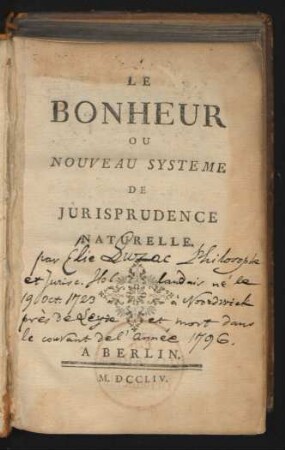 LE
BONHEUR
OU
NOUVEAU SYSTEME
DE
JURISPRUDENCE
NATURELLE.
par Elie Luzac Philosophe
et Juris. Hollandais né le
19 oct 1723 à Noordwich
près de Leyde et mort dans
le courant de l'année 1796.
A BERLIN.
M. DCCLIV.